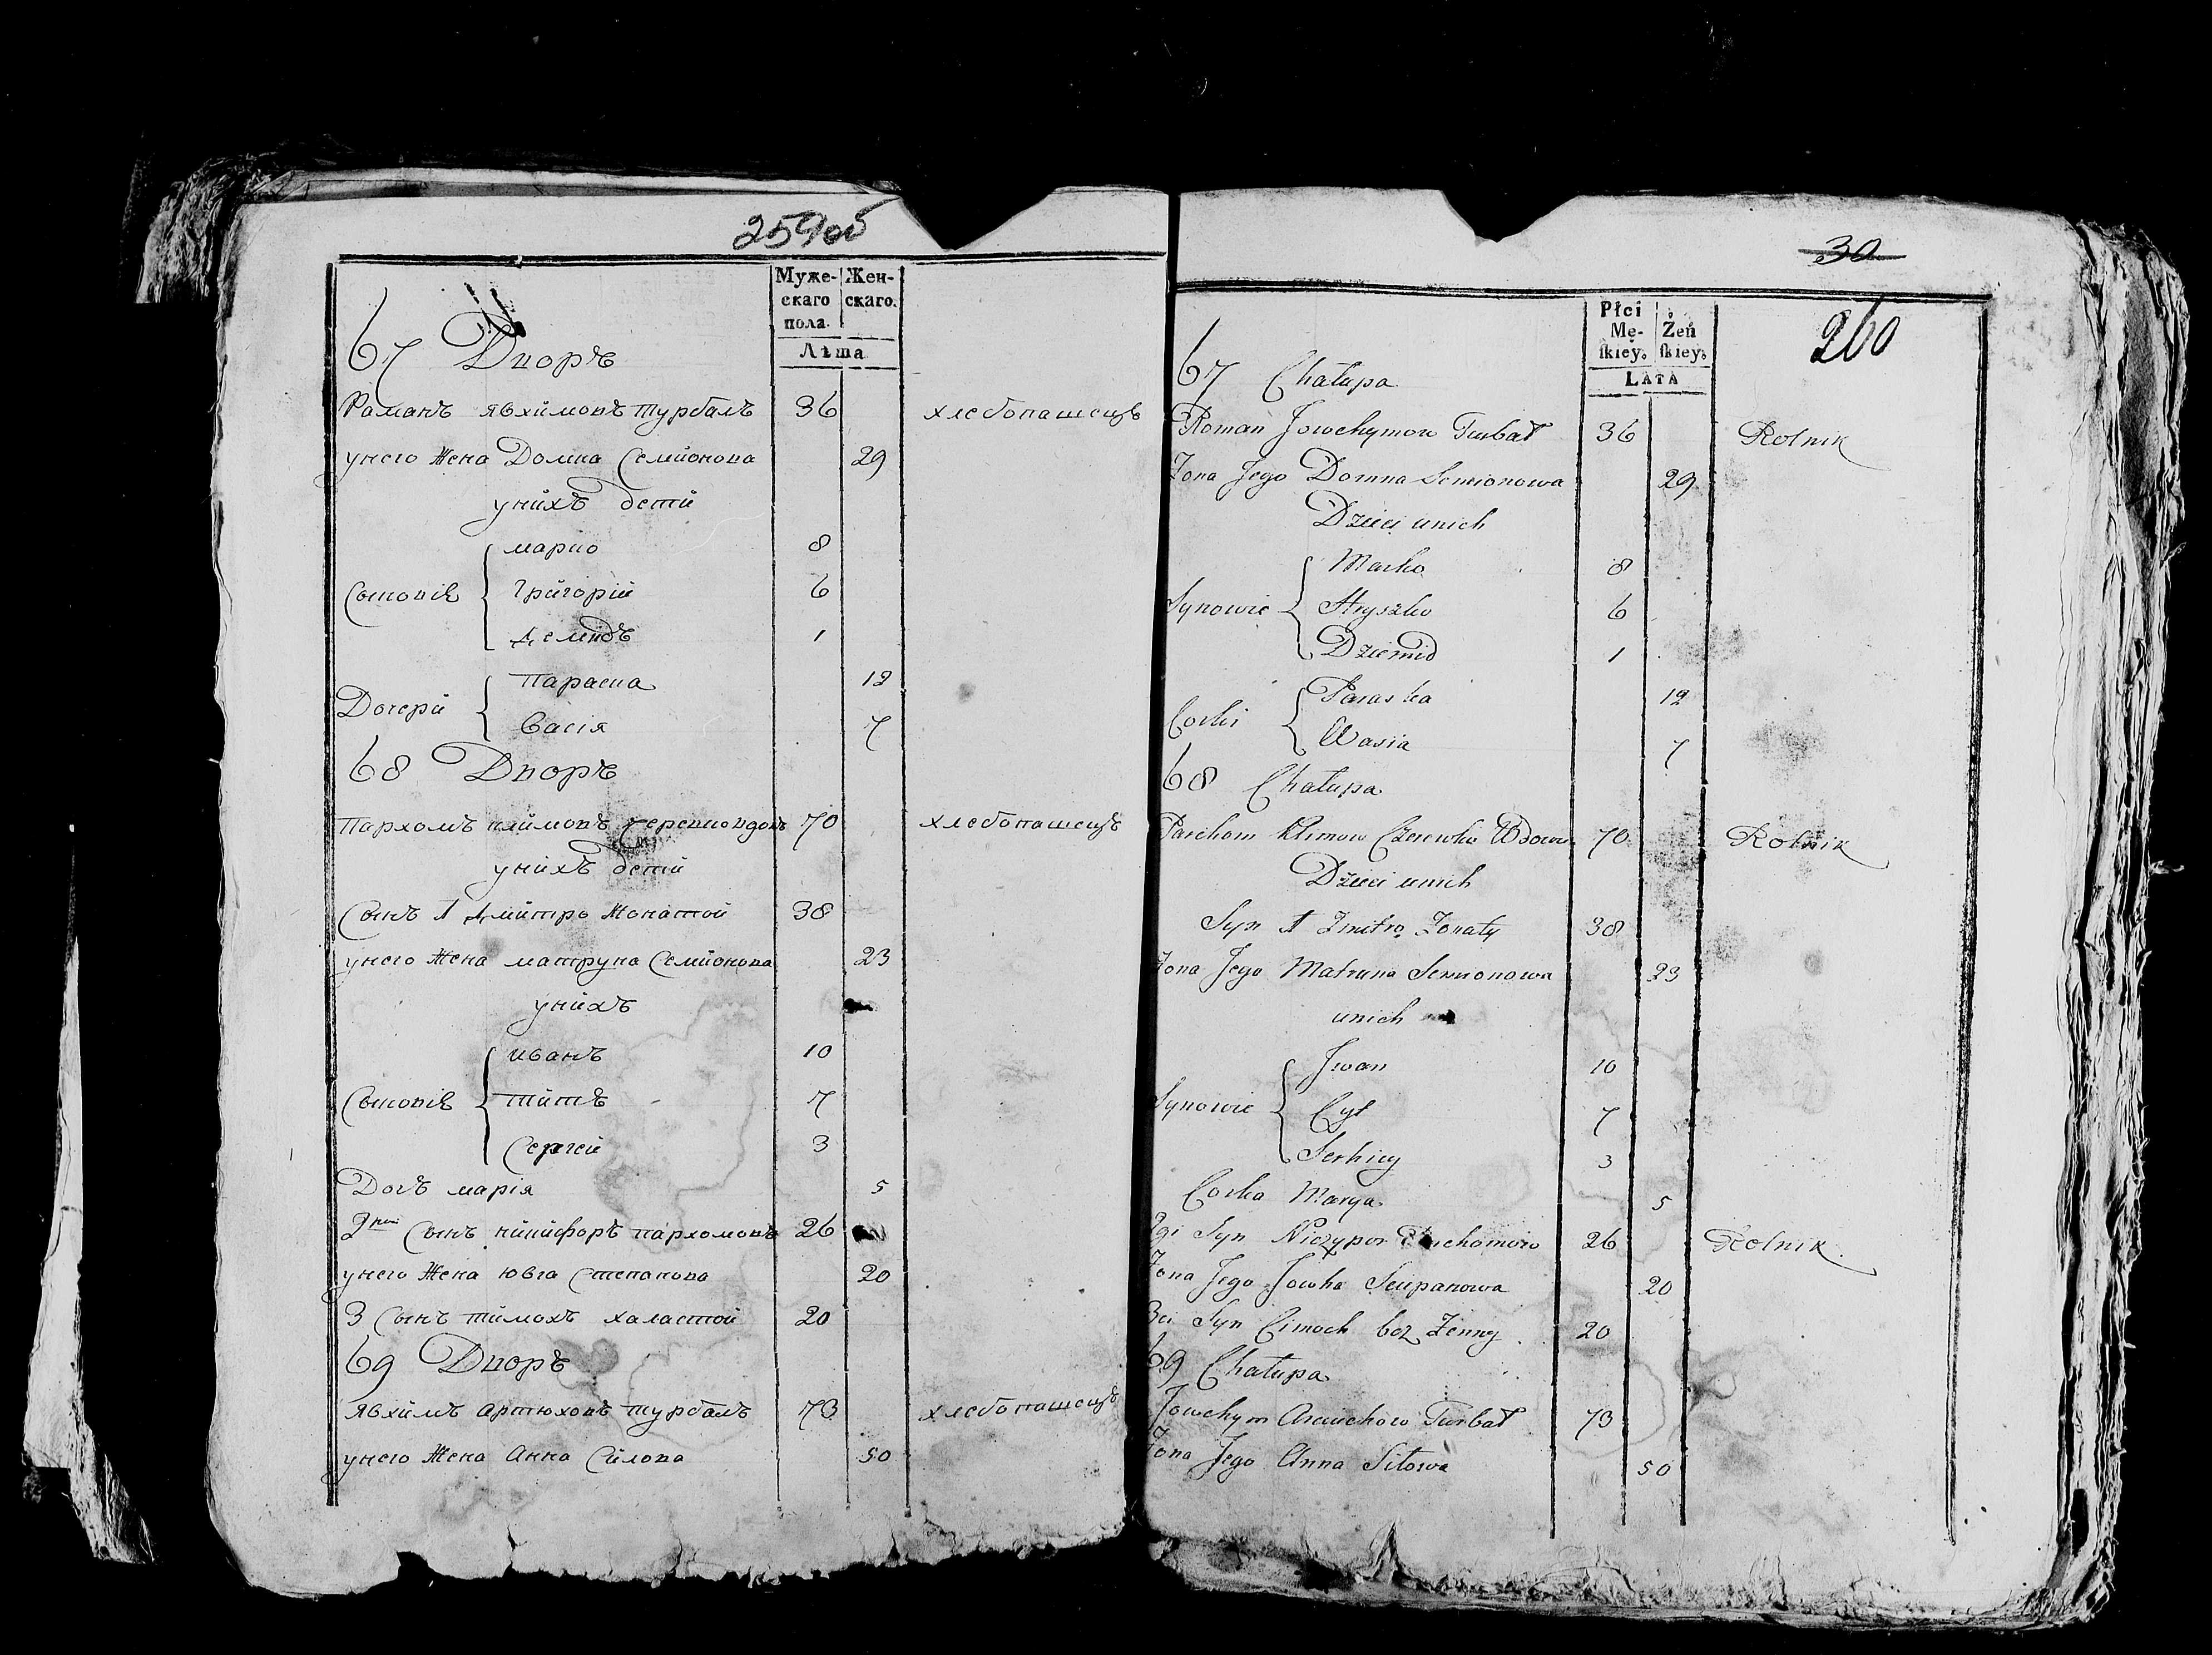 259об
Муже- Жен-
скаго скаго.
пола.
Лѣта
67 Дворъ
Раманъ Явхимовъ Турбалъ 36 хлебопашецъ
унего Жена Домна Семионова 29
унихъ детй
марко 8
Сыновіе Григорій 6
Демидъ 1
Параска 12
Дочерй
Васія 7
68 Дворъ
Пархомъ климовъ Черевко вдовъ 70 хлебопашецъ
унихъ детй
Сынъ 1 Дмитро Жонатой 38
унего Жена матруна Семионова 23
унихъ
иванъ 10
Сыновіе титъ 7
Сергей 3
Дочъ марія 5
2ой Сынъ никифоръ пархомовъ 26
унего Жена Ювга Степанова 20
3 Сынъ тимохъ халастой 20
69 Дворъ
Явхимъ Артюховъ турбалъ 73 хлебопашецъ
унего Жена Анна Силова 50
30
260
Płci Żeń
Mę-
skiey. skiey.
LATA
67 Chałupa
Roman Jowchymow Turbał 36 Rolnik
Zona Jego Domna Semionowa 29
Dzieci unich
Marko 8
Synowie Hryszko 6
Dziemid 1
Paraska 12
Corki
Wasia 7
68 Chałupa
Parchom Klimow Czerewko Wdowiec 70 Rolnik
Dzieci unich
Syn 1 Zmitro Zonaty 38
Zona Jego Matruna Semionowa 23
unich
Jwan 10
Synowie Cyt 7
Serhiey 3
Corka Marya 5
2gi Syn Niczypor Parchomow 26 Rolnik
Zona Jego Jowha Sciepanowa 20
3ci Syn Cimoch bez Zenny 20
69 Chałupa
Jowchym Arciuchow Turbał 73
Zona Jego Anna Siłowa 50